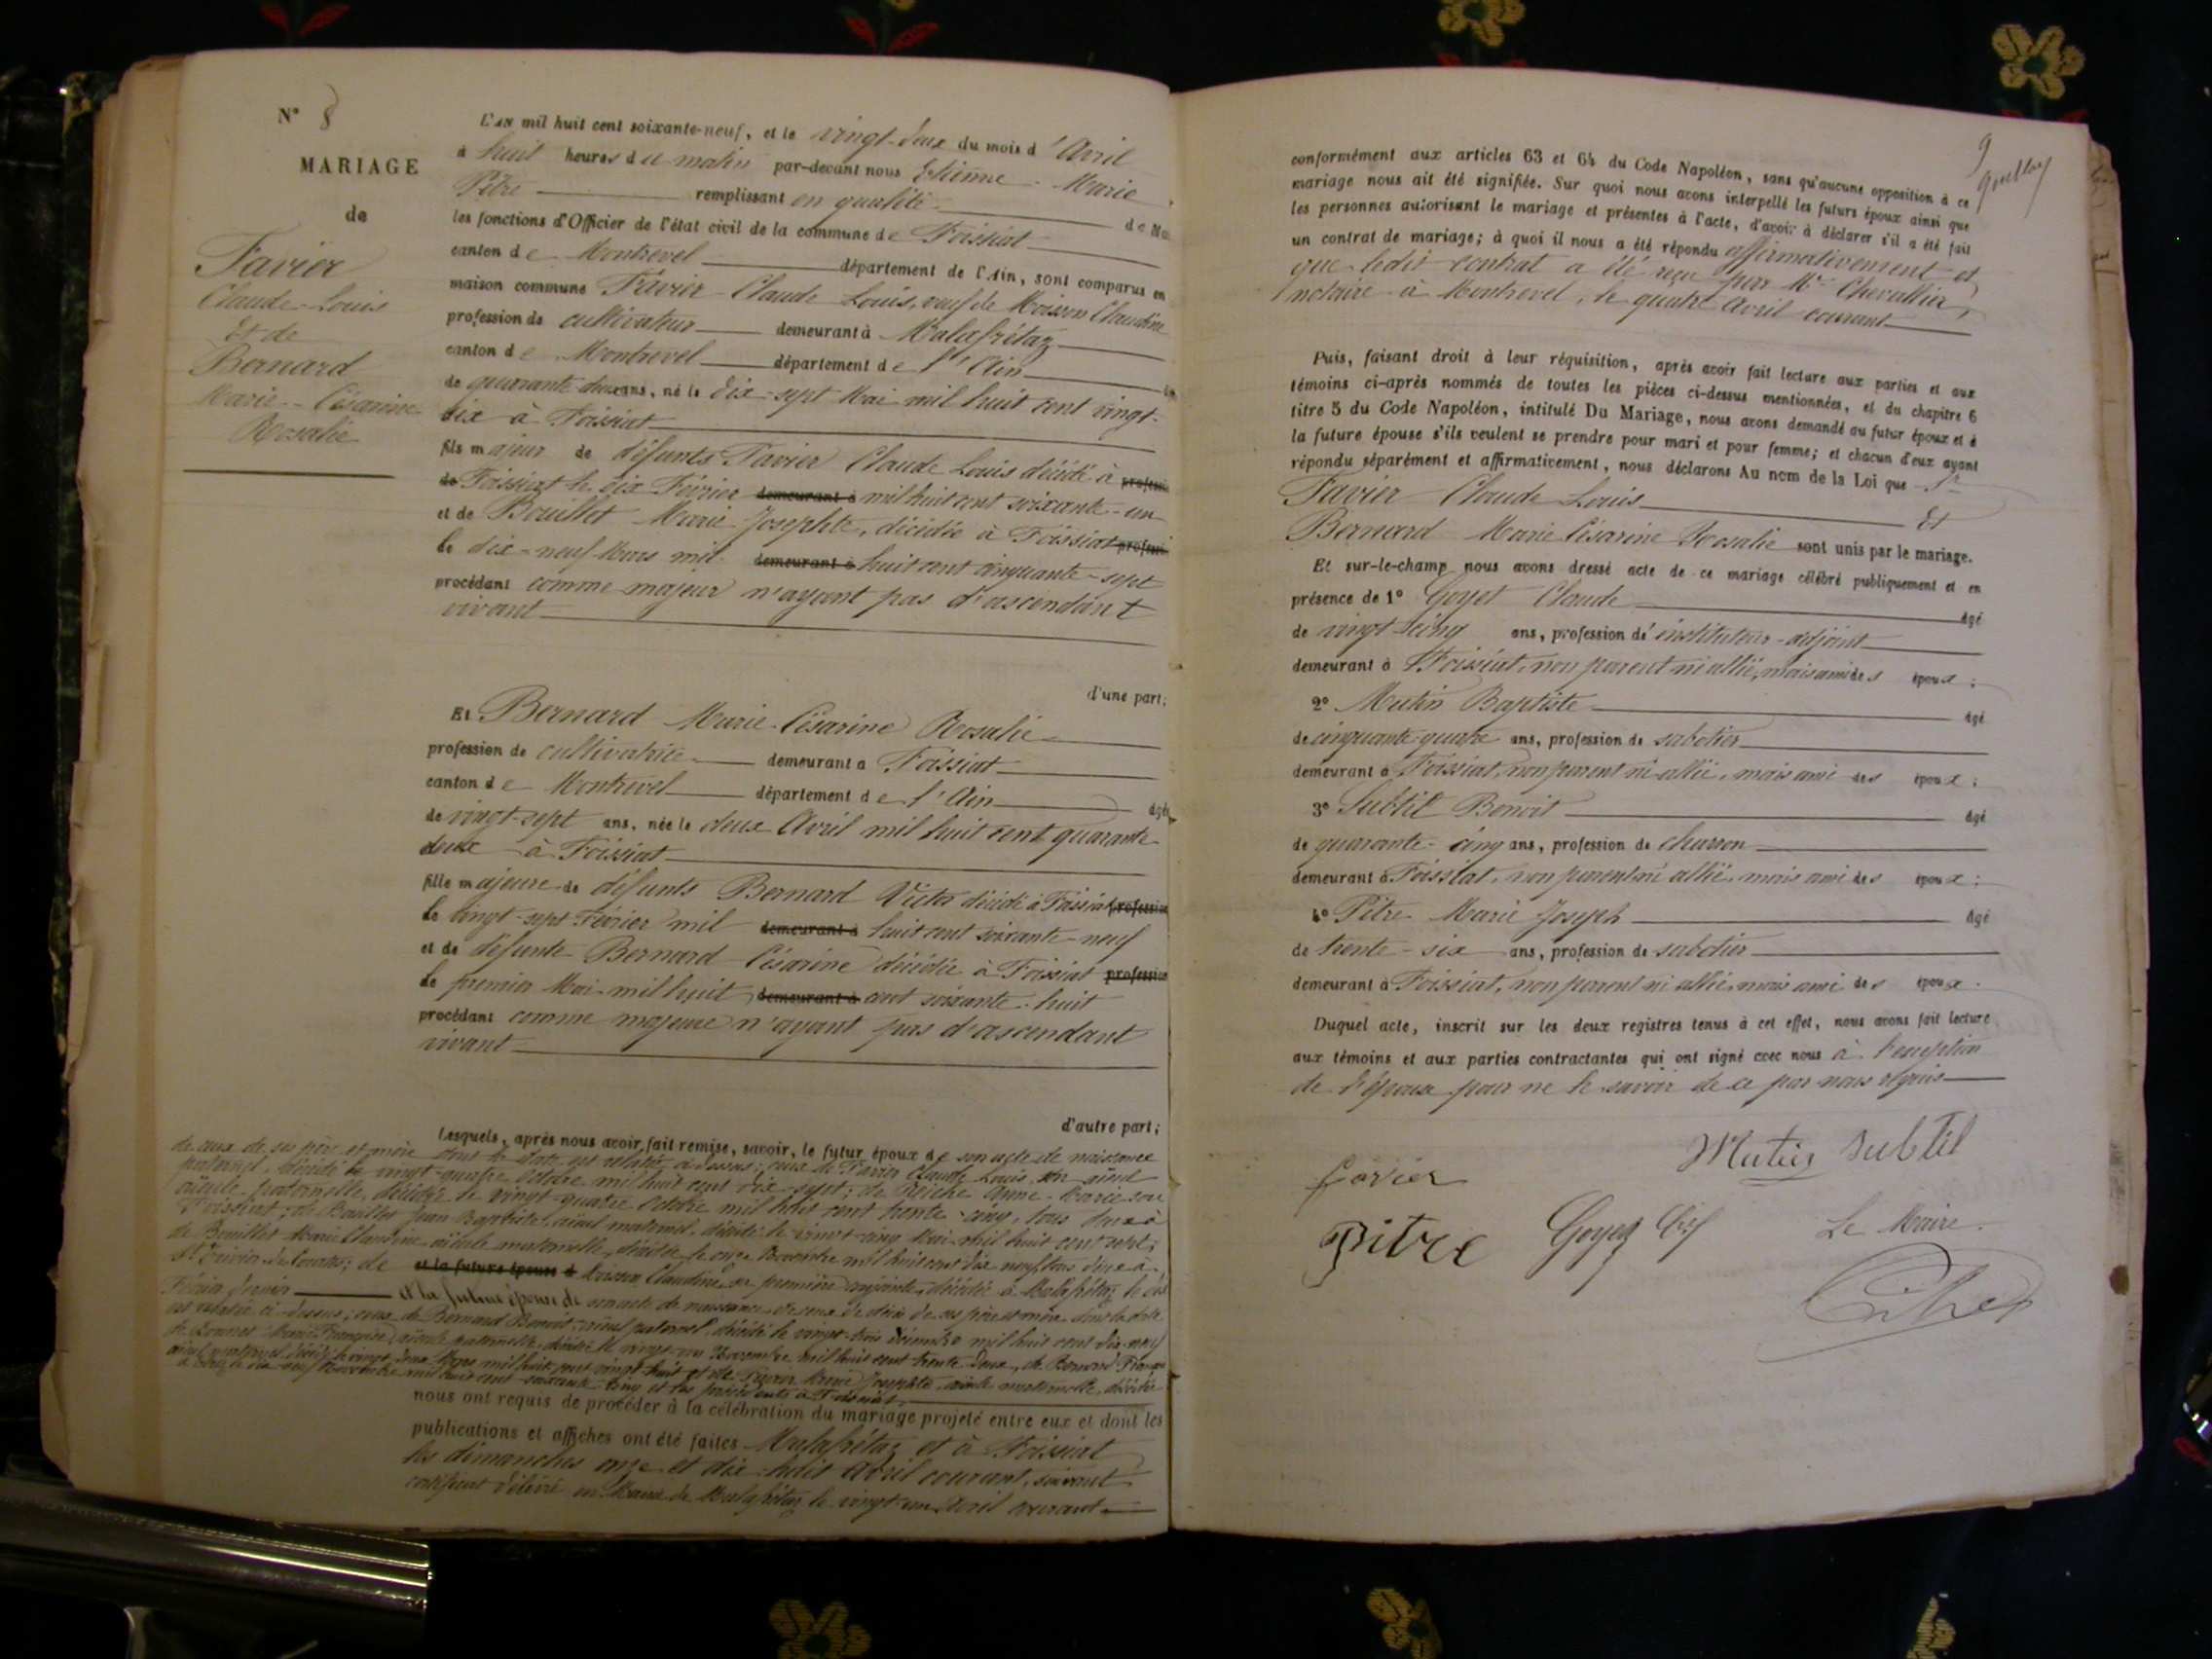 N° 8
MARIAGE
de
Favier
Claude-Louis
Et de
Bernard
Marie-Césarine
Rosalie
L'AN mil huit cent soixante-neuf, et le vingt-deux du mois d'Avril
à huit heures du matin par-devant nous Etienne-Marie
Pitre remplissant en qualité de Ma
les fonctions d'Officier de l'état civil de la commune de Foissiat
canton de Montrevel département de l'Ain, sont comparus en
maison commune Favier Claude Louis, veuf de Moisson Claudine
profession de cultivateur demeurant à Malafrétaz
canton de Montrevel département de l'Ain
de quarante-deux ans, né le dix-sept Mai mil huit cent vingt-
six à Foissiat
fils majeur de défunts Favier Claude Louis décédé à profession
de Foissiat le six Février demeurant à mil huit cent soixante-un
et de Bouillot Marie Josephte, décédée à Foissiat profession
le dix-neuf Mars mil demeurant à huit cent cinquante-sept
procédant comme majeur n'ayant pas d'ascendant
vivant
d'une part;
Et Bernard Marie-Césarine Rosalie
profession de cultivatrice demeurant à Foissiat
canton de Montrevel département de l'Ain âgée
de vingt-sept ans, née le deux Avril mil huit cent quarante
deux à Foissiat
fille majeure de défunts Bernard Victor décédé à Foissiat profession
le vingt-sept Février mil demeurant à huit cent soixante-neuf
et de défunte Bernard Césarine décédée à Foissiat profession
le premier Mai mil huit demeurant à cent soixante-huit
procédant comme majeure n'ayant pas d'ascendant
vivant
d'autre part;
Lesquels, après nous avoir fait remise, savoir, le futur époux de son acte de naissance
de ceux de ses père et mère dont la date est relatée ci-dessus; ceux de Favier Claude Louis son aïeul
paternel, décédé le vingt-quatre Octobre mil huit cent dix-sept; de Reiche Anne-Marie son
aïeule paternelle, décédée le vingt-quatre Octobre mil huit cent trente-cinq, tous deux à
Foissiat; de Bouillot Jean Baptiste, aïeul maternel, décédé le vingt-cinq Mai mil huit cent sept;
de Bouillet Marie Claudine aïeule maternelle, décédée le onze Novembre mil huit cent dix neuf tous deux à
St Trivier de Courtes; de et la future épouse d Moisson Claudine, sa première conjointe, décédée à Malafrétaz le dix
Février dernier et la future épouse de son acte de naissance, de ceux de décès de ses père et mère dont la date
est relatée ci-dessus; ceux de Bernard Benoit, aïeul paternel, décédé le vingt-trois Décembre mil huit cent dix-neuf
de Marie Françoise, aïeule paternelle, décédée le vingt-un Novembre mil huit cent trente-deux, de Bernard François
aïeul maternel, décédé le vingt-deux Mars mil huit cent vingt-huit et de Josephte, aïeule maternelle, décédée
le dix-neuf Novembre mil huit cent soixante-cinq et les précédents à Foissiat
nous ont requis de procéder à la célébration du mariage projeté entre eux et dont les
publications et affiches ont été faites Malafrétaz et à Foissiat
les dimanches onze et dix-huit Avril courant, suivant
certificat délivré en Mairie de Malafrétaz le vingt-un Avril courant
9
conformément aux articles 63 et 64 du Code Napoléon, sans qu'aucune opposition à ce
mariage nous ait été signifiée. Sur quoi nous avons interpellé les futurs époux ainsi que
les personnes autorisant le mariage et présentes à l'acte, d'avoir à déclarer s'il a été fait
un contrat de mariage; à quoi il nous a été répondu affirmativement et
que ledit contrat a été reçu par Me Chevallier,
notaire à Montrevel, le quatre Avril courant
Puis, faisant droit à leur réquisition, après avoir fait lecture aux parties et aux
témoins ci-après nommés de toutes les pièces ci-dessus mentionnées, et du chapitre 6
titre 5 du Code Napoléon, intitulé Du Mariage, nous avons demandé au futur époux et à
la future épouse s'ils veulent se prendre pour mari et pour femme; et chacun d'eux ayant
répondu séparément et affirmativement, nous déclarons Au nom de la Loi que Sr
Favier Claude Louis Et
Bernard Marie Césarine Rosalie sont unis par le mariage.
Et sur-le-champ nous avons dressé acte de ce mariage célébré publiquement et en
présence de 1° Goyet Claude âgé
de vingt-cinq ans, profession d'instituteur-adjoint
demeurant à Foissiat, non parent ni allié, mais ami des époux;
2° Mutin Baptiste âgé
de cinquante-quatre ans, profession de sabotier
demeurant à Foissiat, non parent ni allié, mais ami des époux;
3° Subtil Benoit âgé
de quarante-cinq ans, profession de charron
demeurant à Foissiat, non parent ni allié, mais ami des époux;
4° Pitre Marie Joseph âgé
de trente-six ans, profession de sabotier
demeurant à Foissiat, non parent ni allié, mais ami des époux.
Duquel acte, inscrit sur les deux registres tenus à cet effet, nous avons fait lecture
aux témoins et aux parties contractantes qui ont signé avec nous à l'exception
de l'épouse pour ne le savoir de ce par nous requis
Mutin Subtil
favier
Pitre Goyet Le Maire.
Pitre